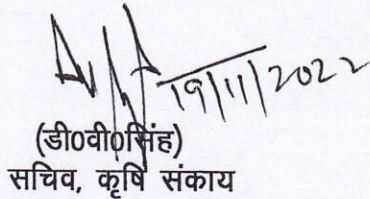 19/11/2022
(डी0वी0सिंह)
सचिव, कृषि संकाय